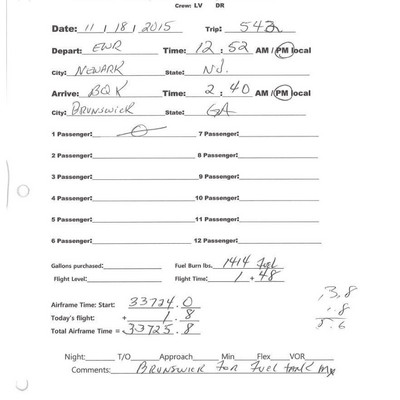 Crew: LV DR
Date: 11 / 18 / 2015 Trip: 542
Depart: EWR Time: 12 : 52 AM / PM local
City: NEWARK State: NJ.
Arrive: BQK Time: 2 : 40 AM / PM local
City: BRUNSWICK State: GA
1 Passenger: 0 7 Passenger:
2 Passenger: 8 Passenger:
3 Passenger: 9 Passenger:
4 Passenger: 10 Passenger:
5 Passenger: 11 Passenger:
6 Passenger: 12 Passenger:
Gallons purchased: Fuel Burn lbs. 1414 FUEL
Flight Level: Flight Time: 1 + 48
Airframe Time: Start: 33724.0
Today's flight: + 1.8
Total Airframe Time = 33725.8
13.8
1.8
5.6
Night: T/O Approach Min Flex VOR
Comments: BRUNSWICK FOR FUEL TANK MX